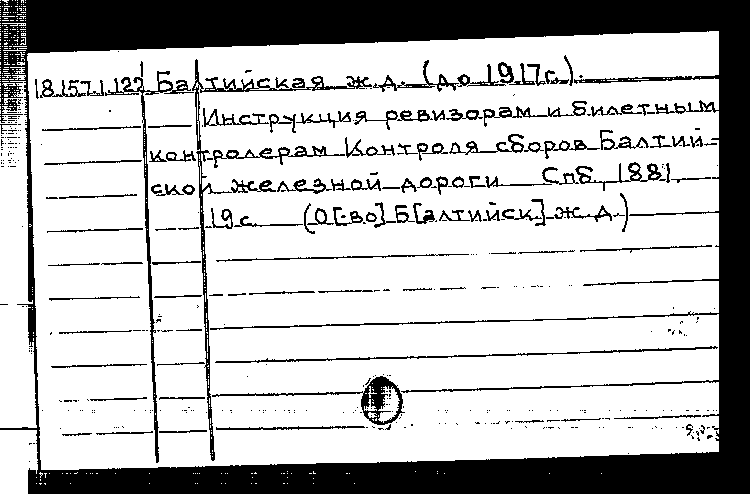 18.157.1.122 Балтийская ж.д. (до 1917г.).
Инструкция ревизорам и билетным
контролерам Контроля сборов Балтий-
ской железной дороги Спб, 1881.
19с. (О[-во] Б[алтийск] ж.д.)